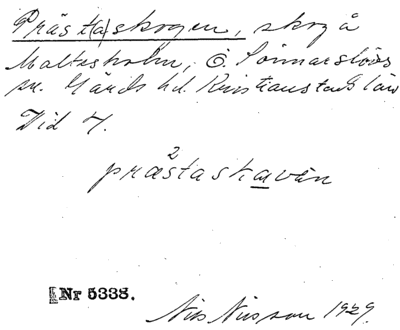 Präst(a)skogen, skog å
Maltesholm, Ö. Sönnarslövs
sn. Gärds hd. Kristianstads län
Vid 7.
2
præstaskavən
Nr 5338.
Nils Nilsson 1929.